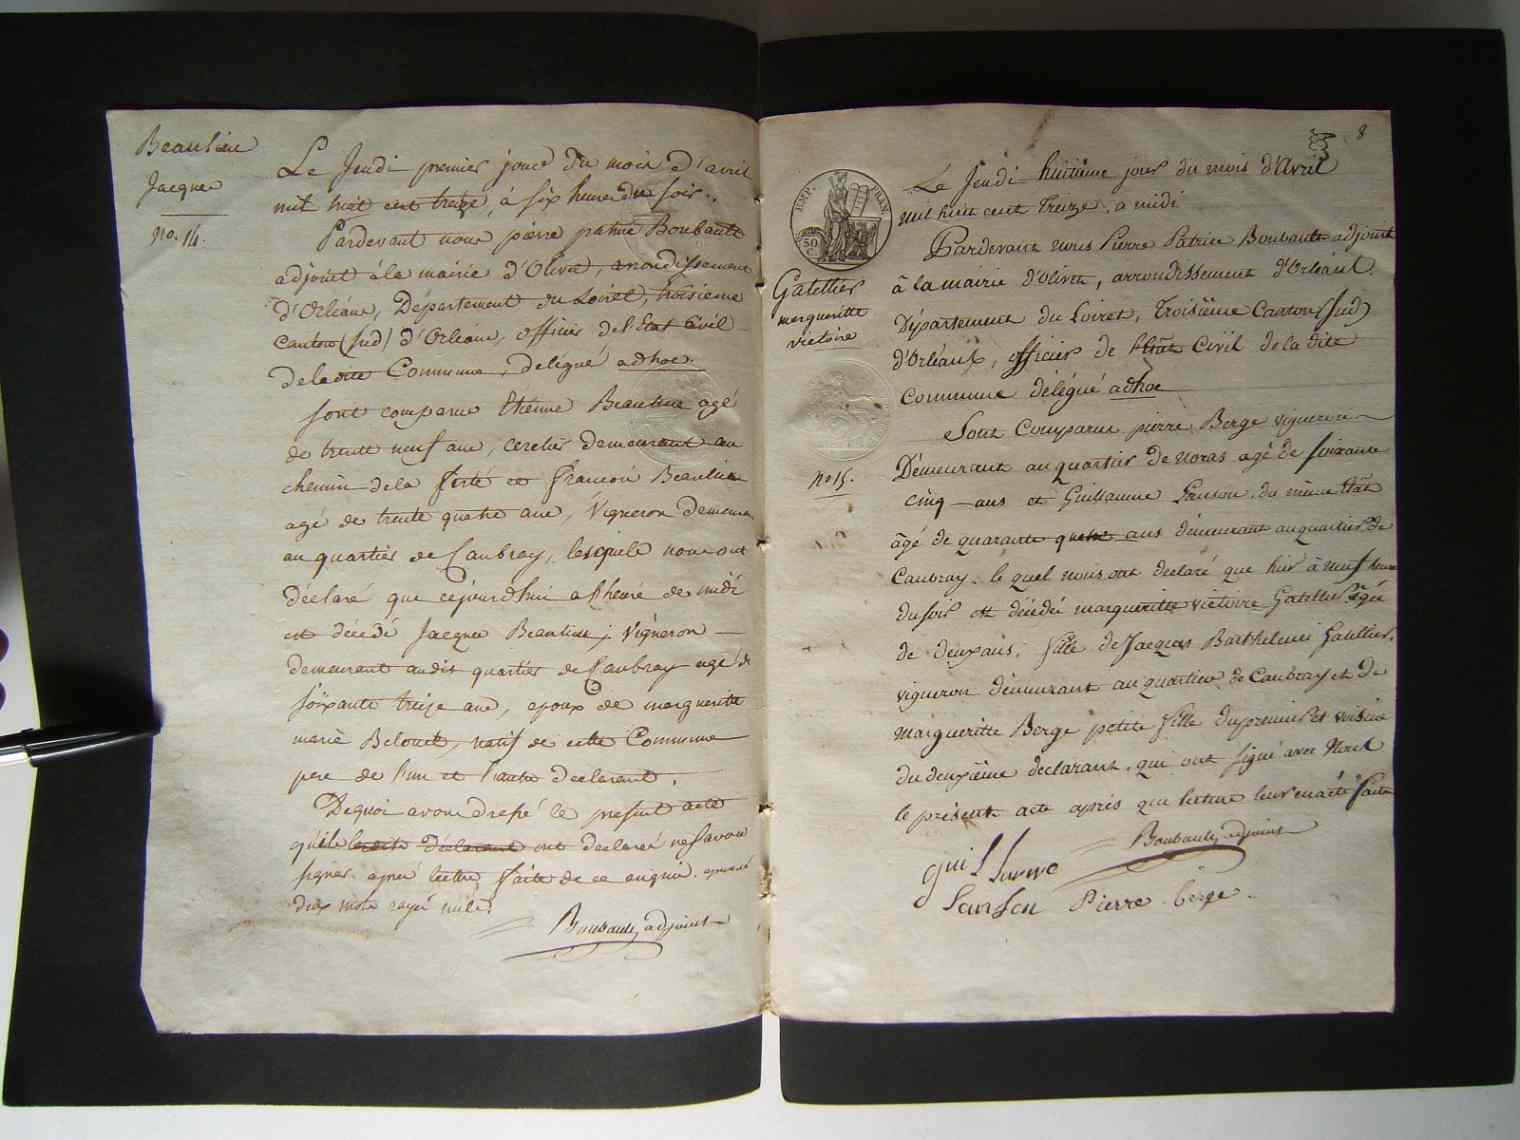 Beaulieu
Jacques
no. 14.
Le Jeudi premier jour du mois d'avril
mil huit cent treize, à six heures du soir..
Pardevant nous pierre patrice Boubault
adjoint à la mairie d'Olivet, arrondissement
d'Orléans, Département du Loiret, troisieme
Canton (sud) d'Orléans, officier de l'Etat Civil
de ladite Commune, delegué adhoc.
sont comparus Etienne Beaulieu agé
de trente neuf ans, cerclier demeurant au
chemin de la ferté et francois Beaulieu
agé de trente quatre ans, Vigneron demeurant
au quartier de Caubray, lesquels nous ont
déclaré que cejourdhui a l'heure de midi
est décédé Jacques Beaulieu, Vigneron
demeurant audit quartier de Caubray agé de
soixante treize ans, epoux de marguerite
marie Belouet, natif de cette Commune
pere de l'un et l'autre declarent.
Dequoi avons dressé le present acte
qu'ils lesdits déclarant ont declaré ne savoir
signer. après lecture faite de ce enquis. approuvé
deux mots rayés nuls.
Boubault, adjoint
8
EMP. FRAN.
50 C.
Gatellier
margueritte
victoire
no 15.
Le Jeudi huitième jour du mois d'Avril
mil huit cent Treize, a midi
Pardevant nous Pierre Patrice Boubault adjoint
à la mairie d'olivet, arrondissement d'Orléans.
Département du Loiret, Troisième Canton (Sud)
d'Orléans, officier de l'Etat Civil de la dite
Commune délégué adhoc
Sont Comparus pierre Berge vigneron
Démeurant au quartier de noras agé de soixante
cinq ans et Guillaume Sanson du même Etat
âgé de quarante quatre ans démeurant au quartier de
Caubray. le quel nous ont declaré que hier à neuf heures
du soir est décédé margueritte victoire Gatellier agée
de deux ans, fille de Jacques Barthelemi Gatellier,
vigneron démeurant au quartier de Caubray et de
margueritte Berge petite fille du premier et voisine
du deuxième declarant. qui ont signé avec Nous
le présent acte après que lecture leur en a été faite
Boubault, adjoint
guillaume
Sanson Pierre Berge.